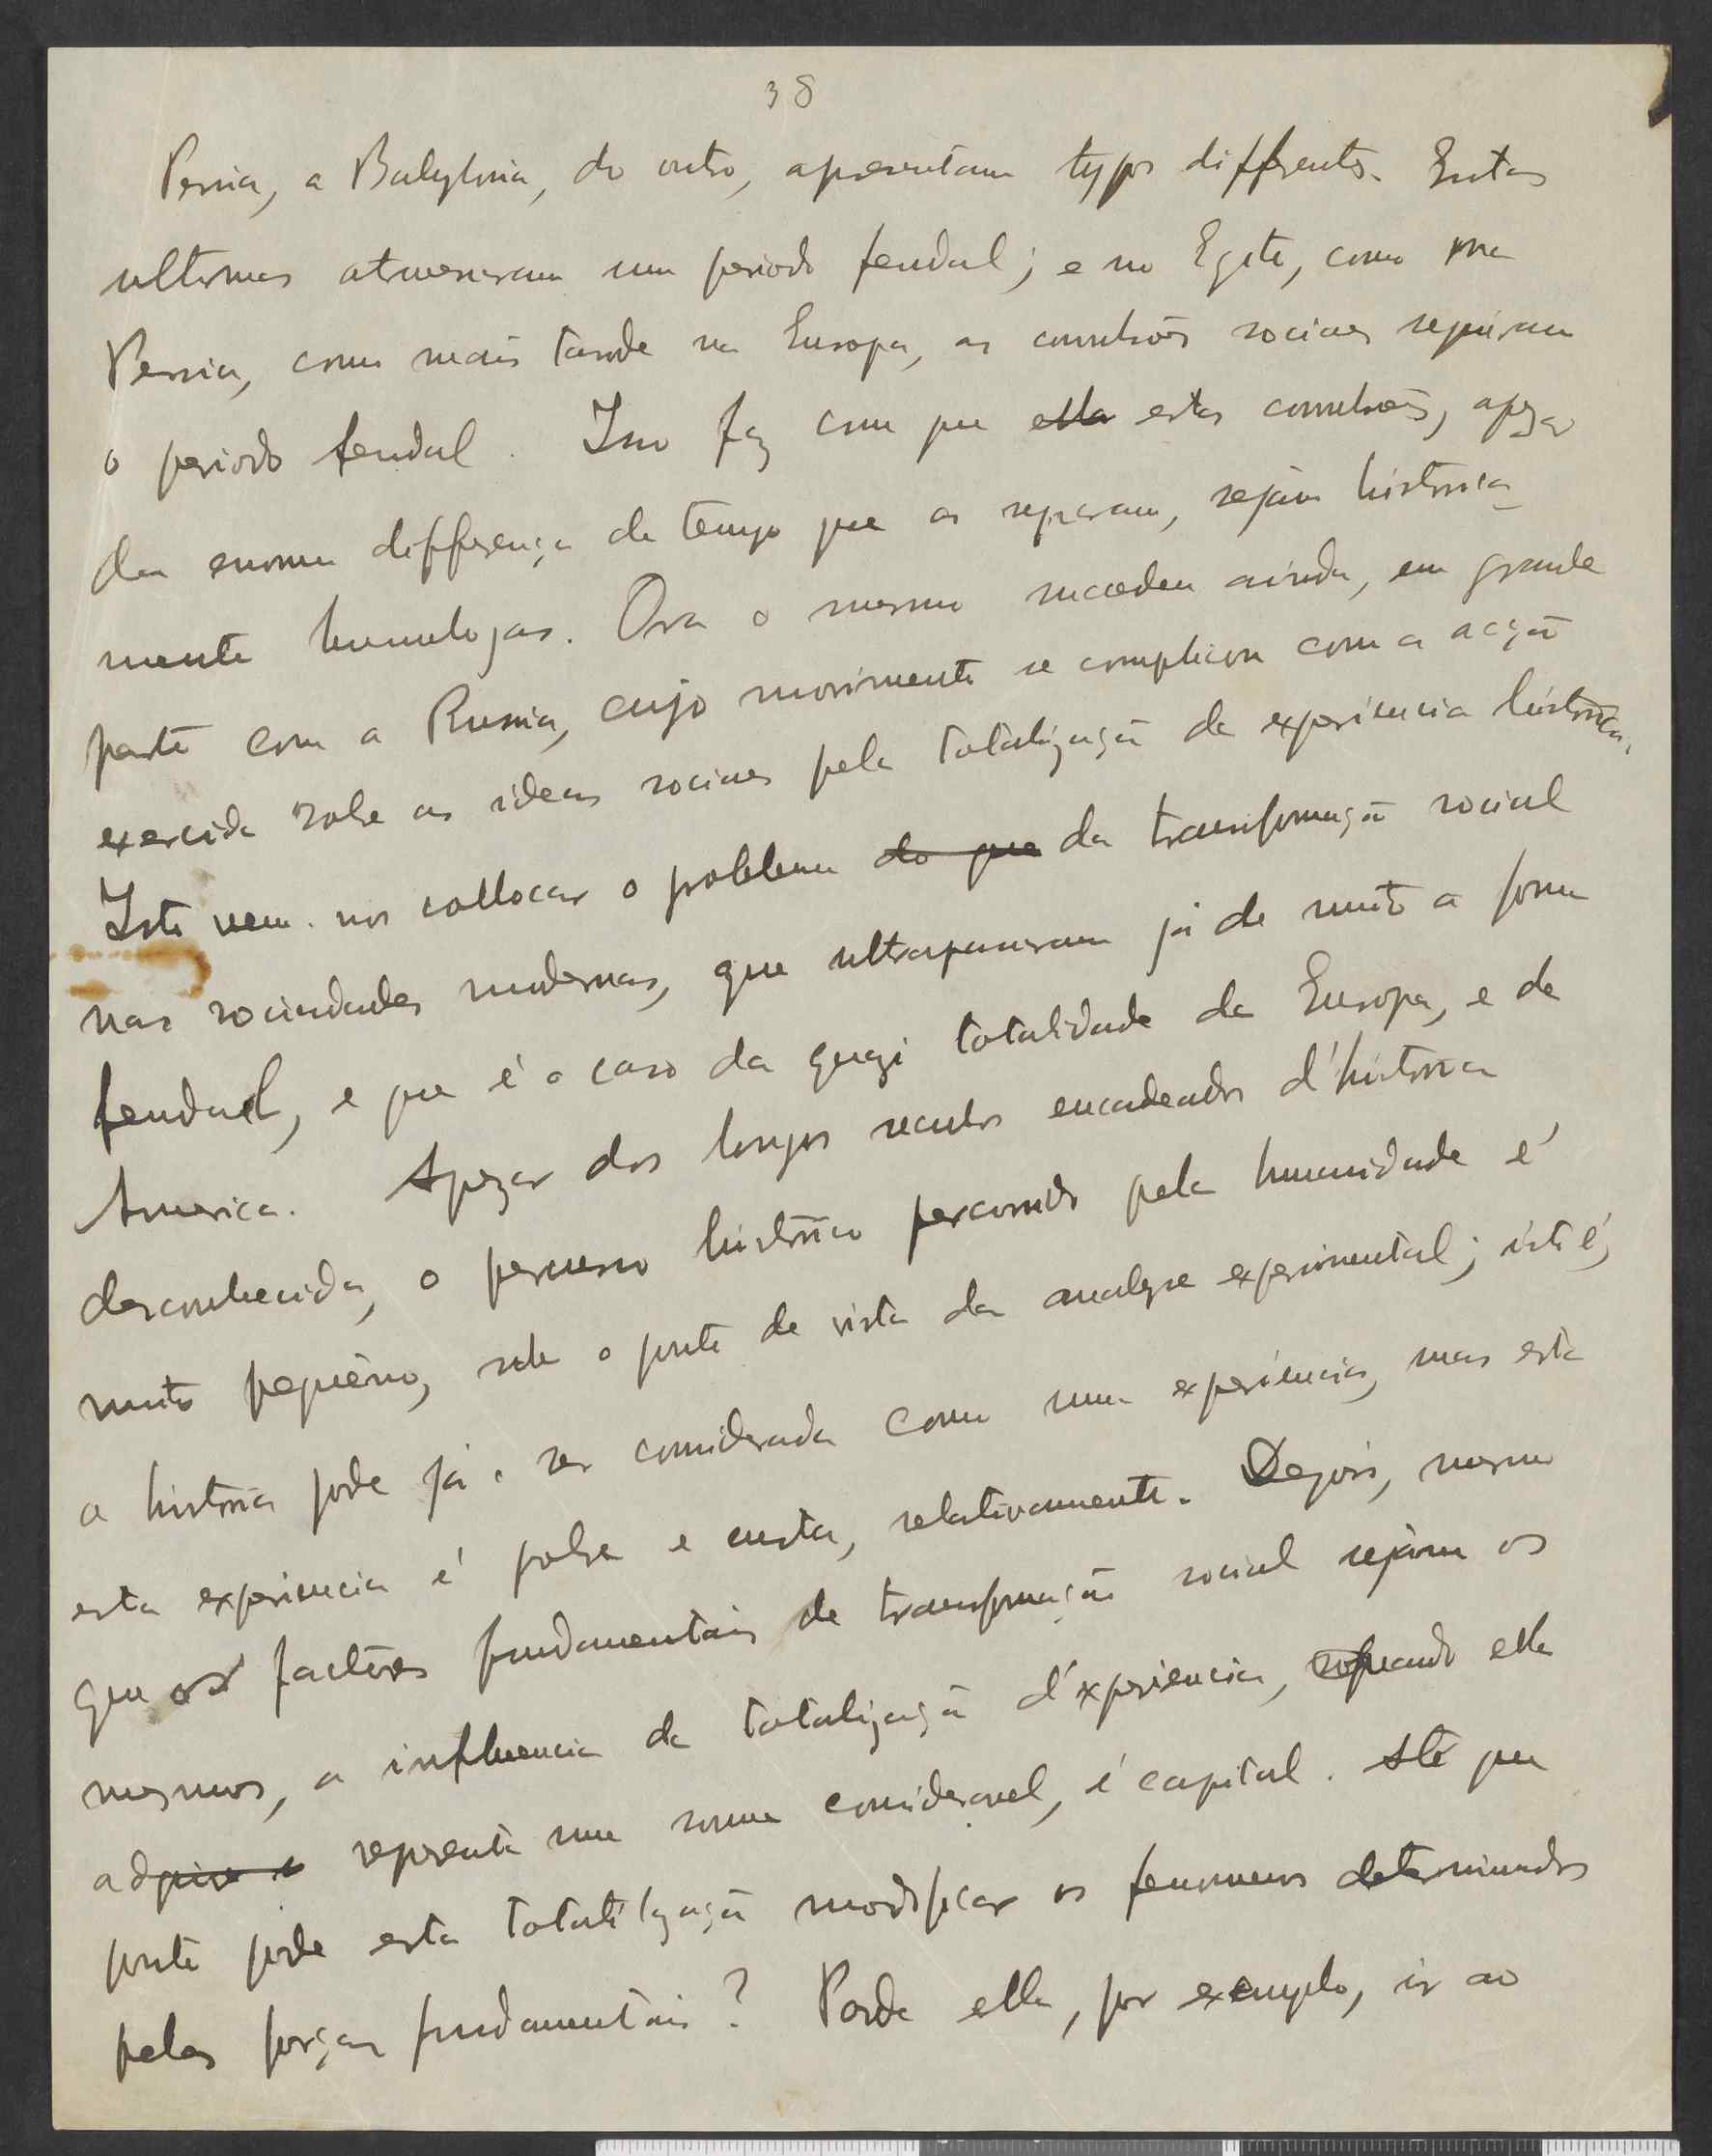 38
Persia, a Babylonia, do outro, apresentam typos differentes. Estas
ultimas atravessaram um periodo feudal; e no Egito, como na
Persia, como mais tarde na Europa, as convulsões sociaes seguiram
o periodo feudal. Isso faz com que ella estas convulsões, apezar
da enorme differença de tempo que as separam, sejam historica-
mente homologas. Ora o mesmo succedeu ainda, em grande
parte com a Russia, cujo movimento se complicou com a acção
exercida sobre as ideas sociaes pela totalização da experiencia historica.
Isto vem nos collocar o problema do que da transformação social
nas sociedades modernas, que ultrapassaram já de muito a forma
feudal, e que é o caso da quazi totalidade da Europa, e da
America. Apezar dos longos seculos encadeados d'historia
desconhecida, o percurso histórico percorrido pela humanidade é
muito pequeno, sob o ponto de vista da analyse experimental; isto é,
a história pode já ser considerada como uma experiencia, mas esta
esta experiencia é pobre e curta, relativamente. Depois, mesmo
que os factores fundamentais de transformação social sejam os
mesmos, a influencia da totalização d'experiencia, quando ella
adquire e represente uma somma consideravel, é capital. Até que
ponto pode esta totalização modificar os fenomenos determinados
pelas forças fundamentais? Pode ella, por exemplo, ir ao